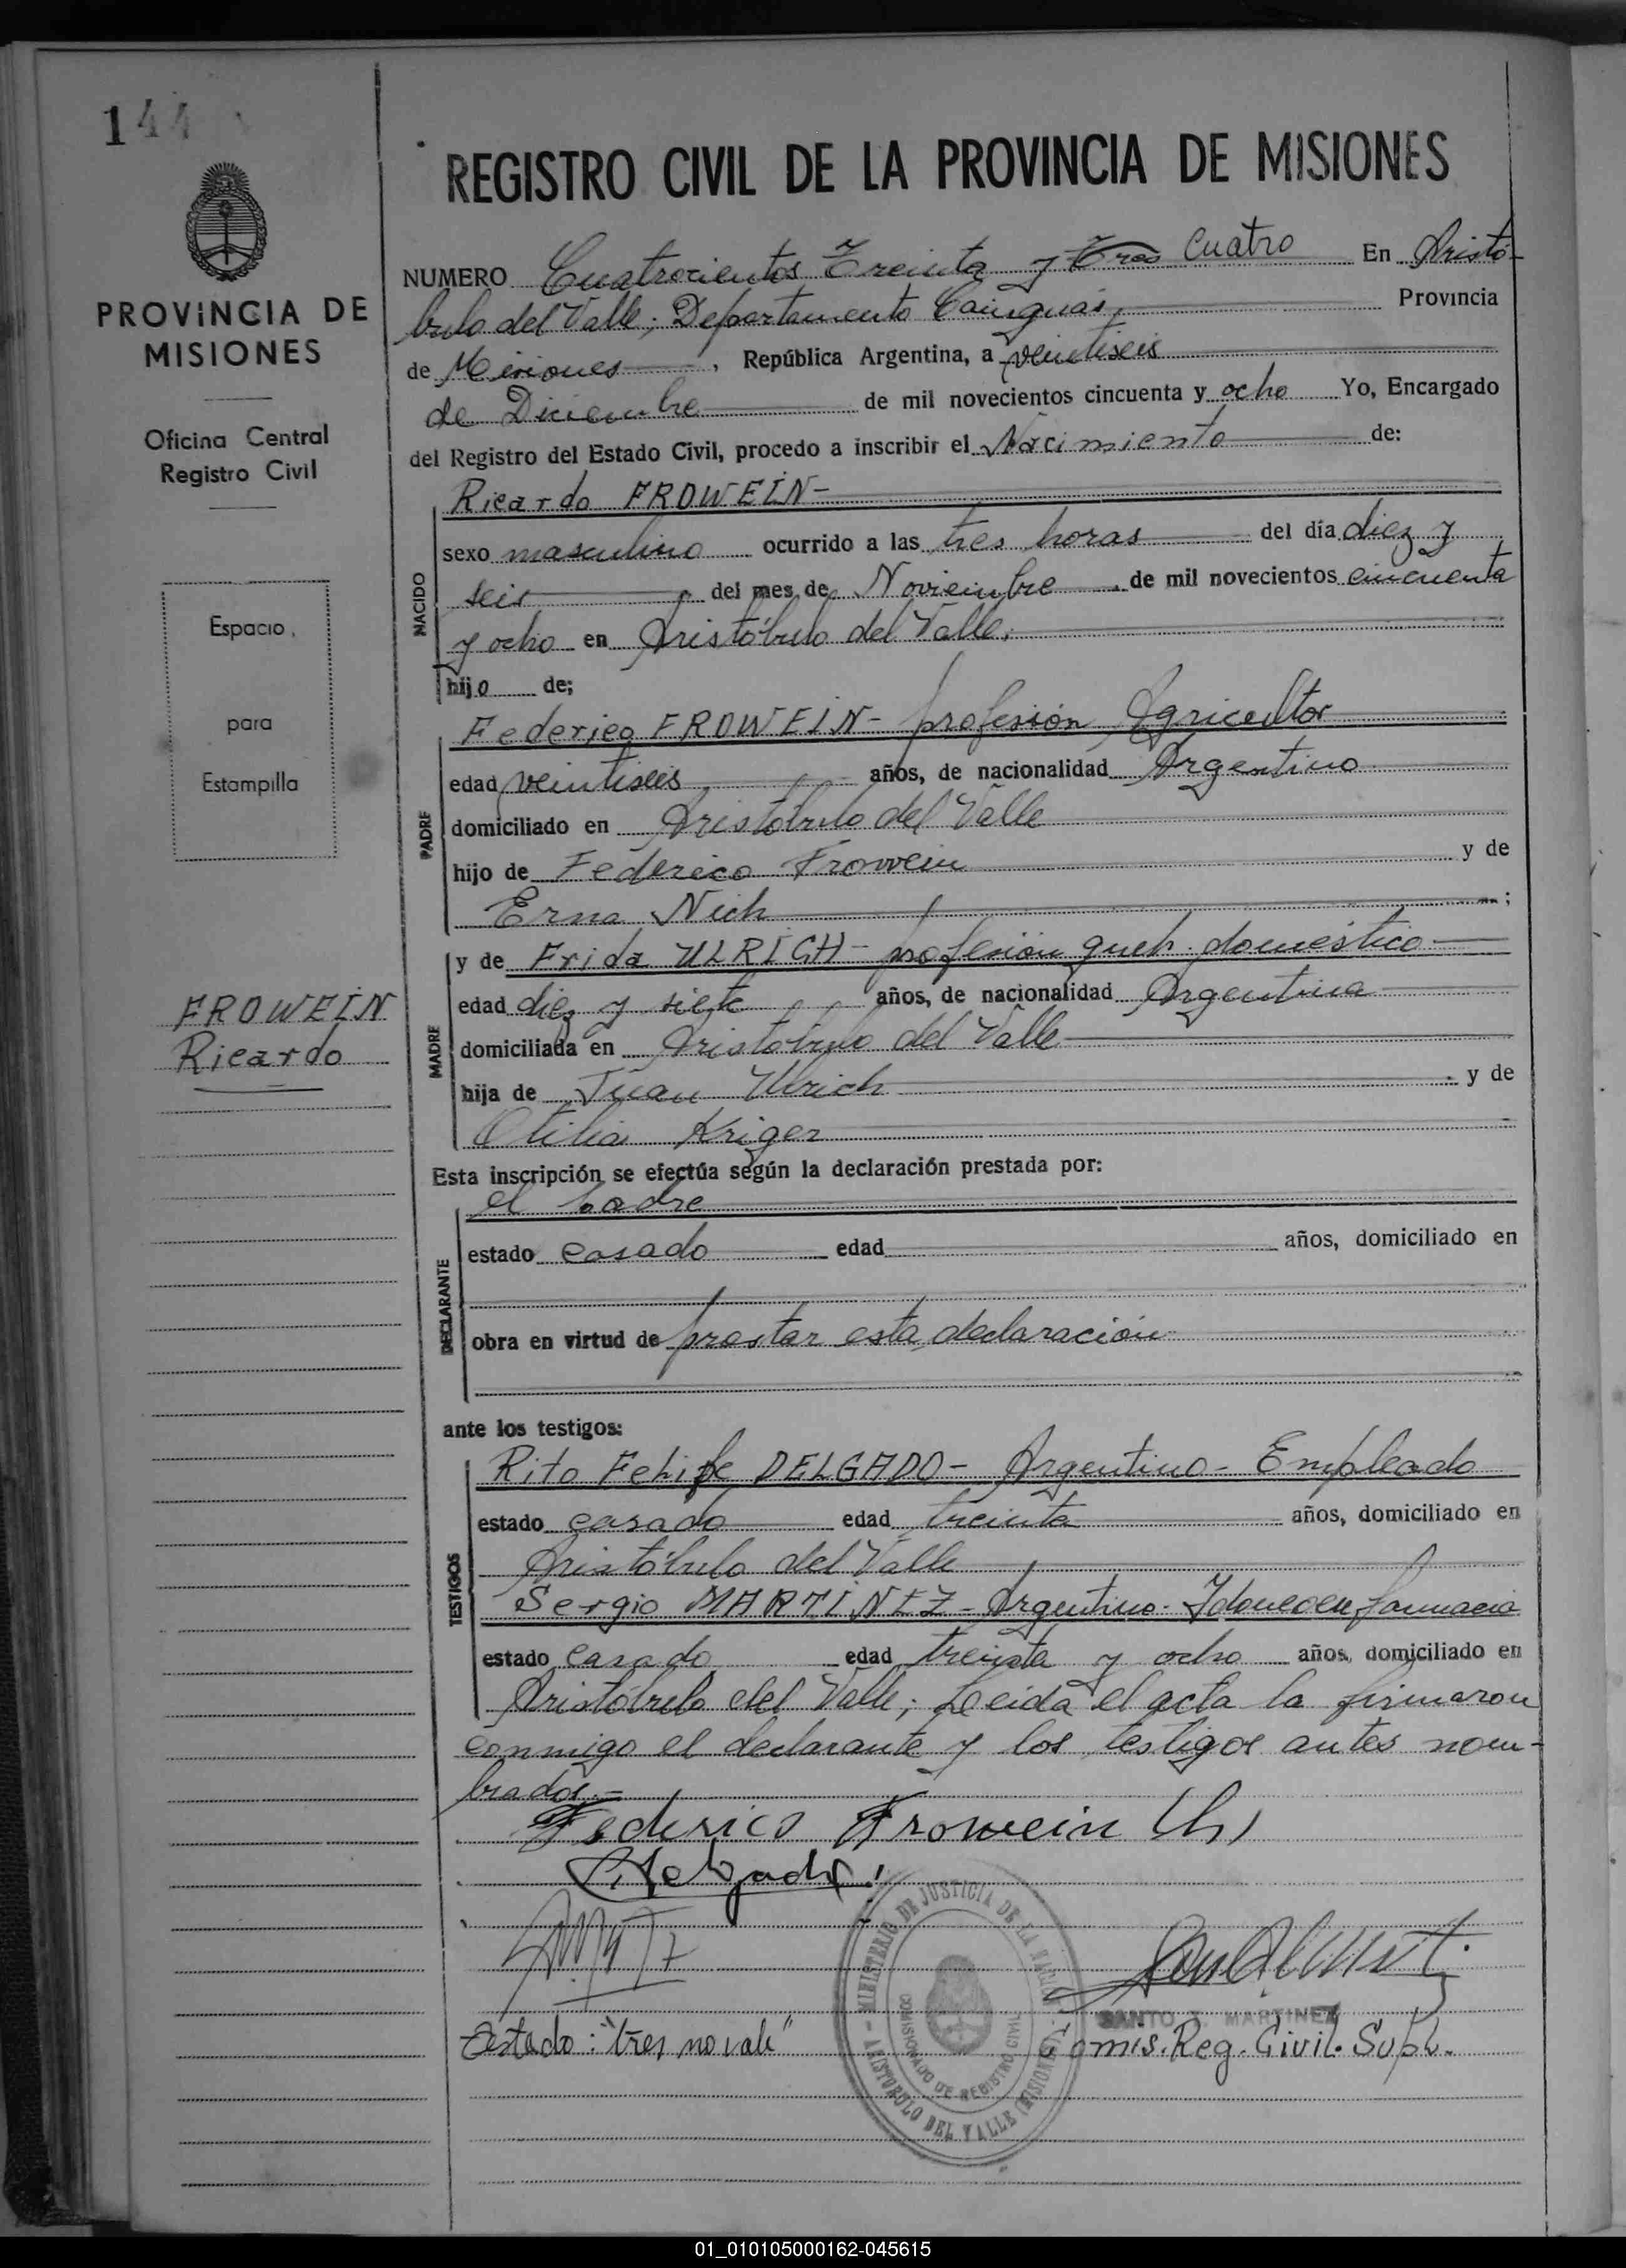 144
PROVINCIA DE
MISIONES
Oficina Central
Registro Civil
Espacio
para
Estampilla
FROWEIN
Ricardo
REGISTRO CIVIL DE LA PROVINCIA DE MISIONES
NUMERO Cuatrocientos Treinta y Tres Cuatro En Aristó-
bulo del Valle; Departamento Cainguás, Provincia
de Misiones, República Argentina, a veintiseis
de Diciembre de mil novecientos cincuenta y ocho Yo, Encargado
del Registro del Estado Civil, procedo a inscribir el Nacimiento de:
NACIDO
Ricardo FROWEIN-
sexo masculino ocurrido a las tres horas del día diez y
seis del mes de Noviembre de mil novecientos cincuenta
y ocho en Aristóbulo del Valle.
hijo de;
PADRE
Federico FROWEIN- profesión Agricultor
edad veintiseis años, de nacionalidad Argentino
domiciliado en Aristóbulo del Valle
hijo de Federico Frowein y de
Erna Nich ;
MADRE
y de Frida ULRICH- profesión queh. doméstico
edad diez y siete años, de nacionalidad Argentina
domiciliada en Aristóbulo del Valle
hija de Juan Ulrich y de
Otilia Kriger
Esta inscripción se efectúa según la declaración prestada por:
DECLARANTE
el padre
estado casado edad años, domiciliado en
obra en virtud de prestar esta declaración
ante los testigos:
TESTIGOS
Rito Felipe DELGADO- Argentino- Empleado
estado casado edad treinta años, domiciliado en
Aristóbulo del Valle
Sergio MARTINEZ- Argentino- Idoneo en farmacia
estado casado edad treinta y ocho años, domiciliado en
Aristóbulo del Valle; Leida el acta la firmaron
conmigo el declarante y los testigos antes nom-
brados.=
Federico Frowein (h)
MINISTERIO DE JUSTICIA DE LA NACION
COMISIONADO DE REGISTRO CIVIL
ARISTOBULO DEL VALLE (MISIONES)
SANTO T. MARTINEZ
Testado: "tres no vale" Comis. Reg. Civil. Supl.
01_010105000162-045615